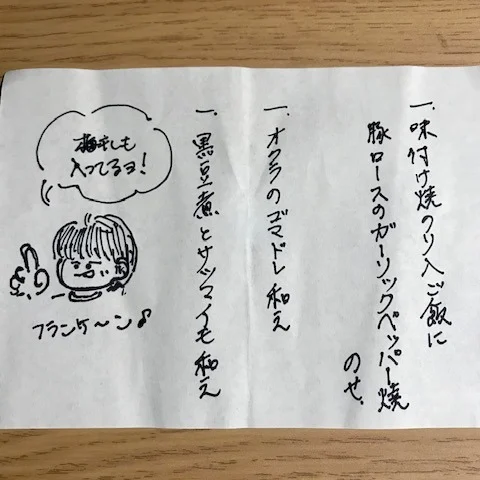 一、味付け焼のり入ご飯に
豚ロースのガーリックペッパー焼
のせ、
一、オクラのゴマドレ和え
一、黒豆煮とサツマイモ和え
梅干しも
入ってるヨ!
フランケ〜ン♪